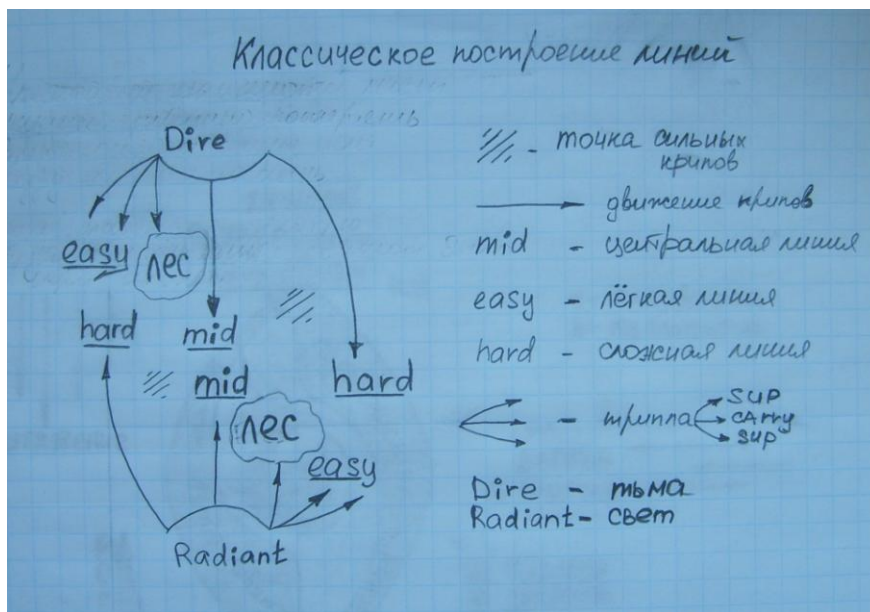 Классическое построение линий
Dire
easy
лес
hard
mid
mid
hard
лес
easy
Radiant
- точка сильных
крипов
движение крипов
mid - центральная линия
easy - лёгкая линия
hard - сложная линия
- трипла
SUP
CArry
SUP
Dire - тьма
Radiant - свет